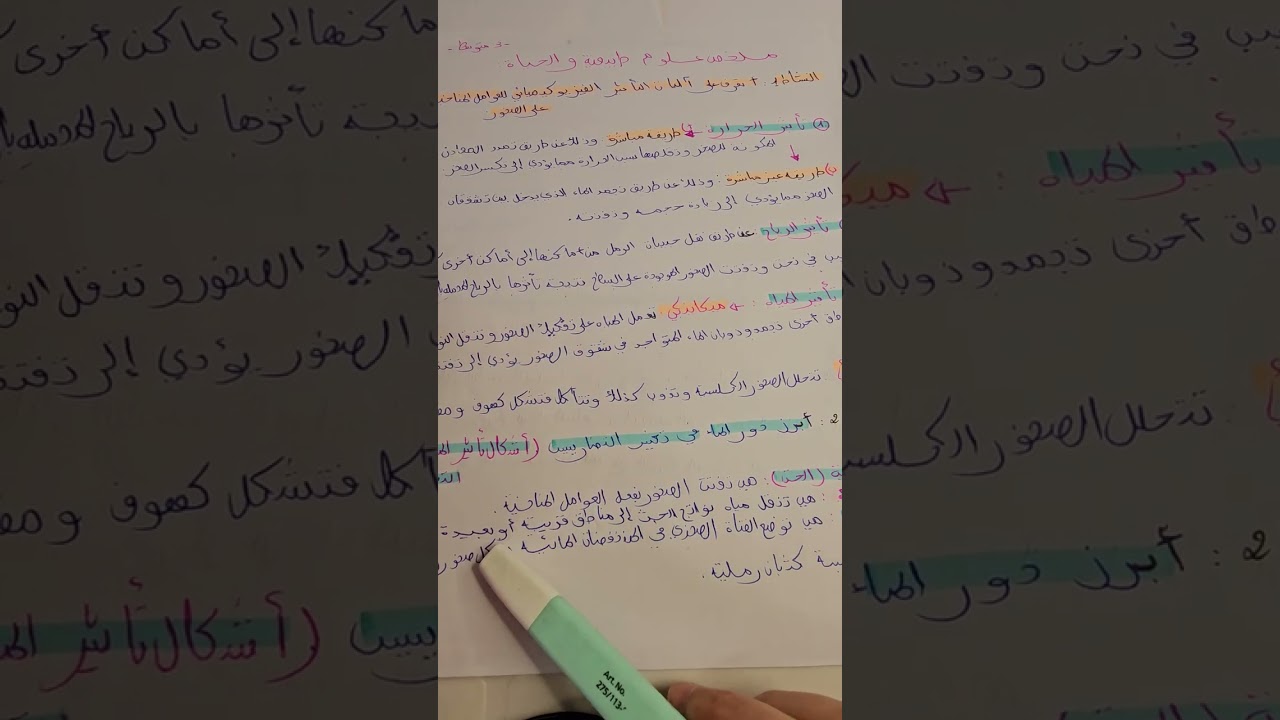 - 3 متوسط -
ملخص علوم طبيعية والحياة
النشاط 1: أتعرف على آليات التأثير الفيزيوكيميائي للعوامل المناخية
على الصخور
تأثير الحرارة: طريقة مباشرة وذلك عن طريق تمدد المعادن
المكونة للصخر وتقلصها بسبب الحرارة مما يؤدي إلى تكسر الصخر
طريقة غير مباشرة: وذلك عن طريق تجمد الماء الذي يدخل بين تشققات
الصخر مما يؤدي إلى زيادة حجمه وتفتته.
تأثير الرياح: عن طريق نقل حبيبات الرمل من أماكنها إلى أماكن أخرى
في نحت وتفتت الصخور الموجودة على السطح نتيجة تأثرها بالرياح المحملة
تأثير المياه: ميكانيكي: تعمل المياه على تفكيك الصخور وتنقل
أخرى تجمد وذوبان الماء المتواجد في شقوق الصخور يؤدي إلى
تتحلل الصخور الكلسية وتذوب كذلك وتتآكل فتشكل كهوف
2: أبرز دور الماء في تغيير التضاريس (أشكال تأثير
(الحت): هي تفتت الصخور بفعل العوامل المناخية.
هي تنقل مياه نواتج الحت إلى مناطق قريبة أو بعيدة
هي توضع الفتات الصخري في المنخفضات المائية
كثبان رملية.
Art. No.
275/113-